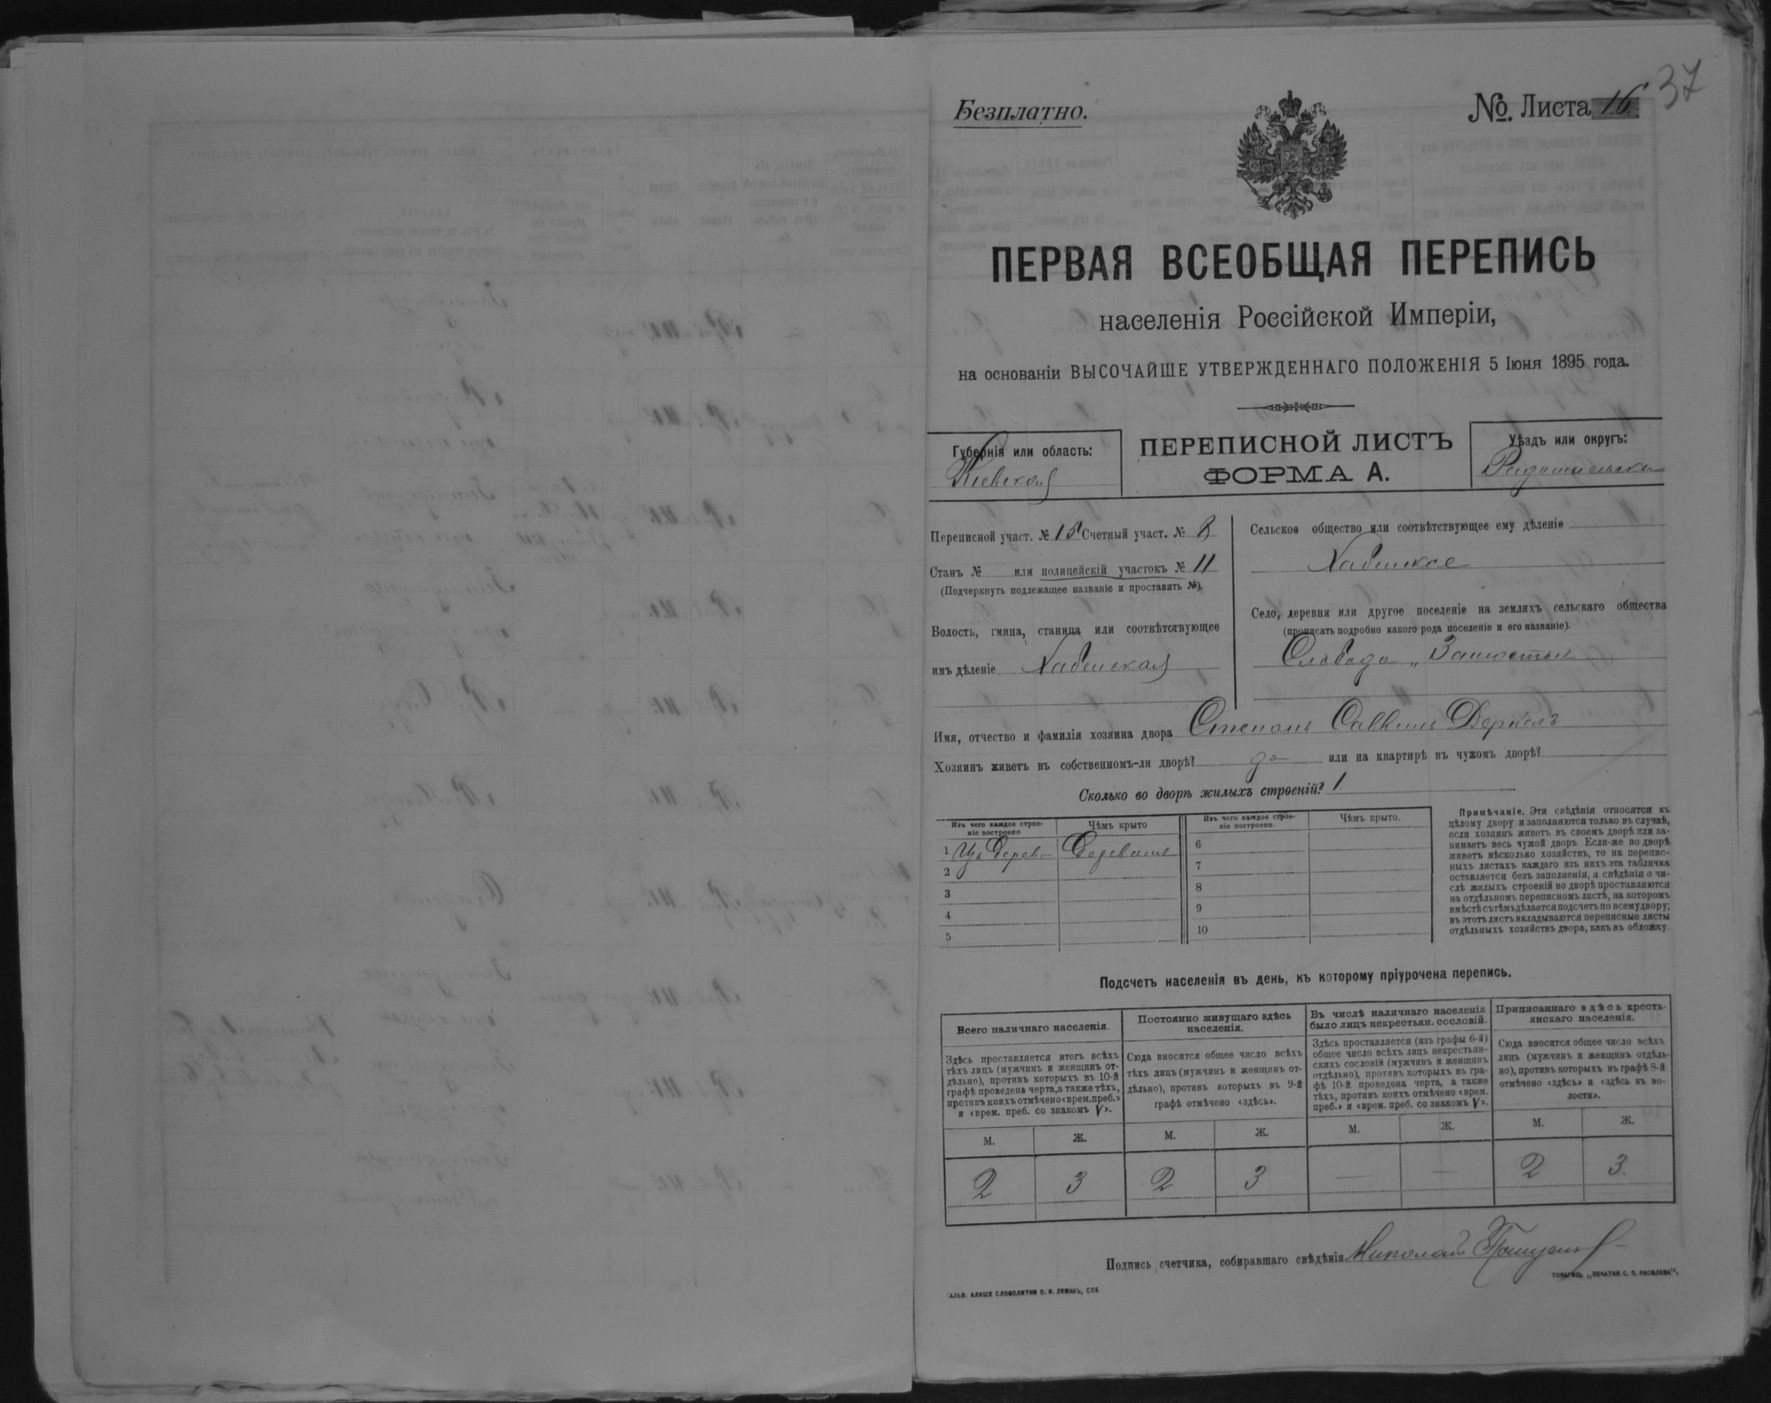 37
Безплатно.
№. Листа 16
ПЕРВАЯ ВСЕОБЩАЯ ПЕРЕПИСЬ
населенія Россійской Имперіи,
на основаніи ВЫСОЧАЙШЕ УТВЕРЖДЕННАГО ПОЛОЖЕНІЯ 5 Іюня 1895 года.
Губернія или область:
Кіевская
ПЕРЕПИСНОЙ ЛИСТЪ
ФОРМА А.
Уѣздъ или округъ:
Переписной участ. № 15 Счетный участ. № 8
Станъ № или полицейскій участокъ № 11
(Подчеркнуть подлежащее названіе и проставить №).
Волость, гмина, станица или соотвѣтствующее
имъ дѣленіе Хабенская
Сельское общество или соотвѣтствующее ему дѣленіе
Хабенское
Село, деревня или другое поселеніе на земляхъ сельскаго общества
(прописать подробно какого рода поселеніе и его названіе).
Слобода „
Имя, отчество и фамилія хозяина двора Степанъ
Хозяинъ живетъ въ собственномъ-ли дворѣ? да или на квартирѣ въ чужомъ дворѣ?
Сколько во дворѣ жилыхъ строеній? 1
Изъ чего каждое строе-
ніе построено
Чѣмъ крыто
Изъ чего каждое строе-
ніе построено.
Чѣмъ крыто.
1 Изъ
2
3
4
5
6
7
8
9
10
Примѣчаніе. Эти свѣдѣнія относятся къ
цѣлому двору и заполняются только въ случаѣ,
если хозяинъ живетъ въ своемъ дворѣ или за-
нимаетъ весь чужой дворъ. Если-же во дворѣ
живетъ нѣсколько хозяйствъ, то на перепис-
ныхъ листахъ каждаго изъ нихъ эта табличка
оставляется безъ заполненія, а свѣдѣнія о чи-
слѣ жилыхъ строеній во дворѣ проставляются
на отдѣльномъ переписномъ листѣ, на которомъ
вмѣстѣ съ тѣмъ дѣлается подсчетъ по всему двору;
въ этотъ листъ вкладываются переписные листы
отдѣльныхъ хозяйствъ двора, какъ въ обложку.
Подсчетъ населенія въ день, къ которому пріурочена перепись.
Всего наличнаго населенія.
Здѣсь проставляется итогъ всѣхъ
тѣхъ лицъ (мужчинъ и женщинъ от-
дѣльно), противъ которыхъ въ 10-й
графѣ проведена черта, а также тѣхъ,
противъ коихъ отмѣчено «врем. преб.»
и «врем. преб. со знакомъ V».
Постоянно живущаго здѣсь
населенія.
Сюда вносится общее число всѣхъ
тѣхъ лицъ (мужчинъ и женщинъ от-
дѣльно), противъ которыхъ въ 9-й
графѣ отмѣчено «здѣсь».
Въ числѣ наличнаго населенія
было лицъ некрестьян. сословій.
Здѣсь проставляется (изъ графы 6-й)
общее число всѣхъ лицъ некрестьян-
скихъ сословій (мужчинъ и женщинъ
отдѣльно), противъ которыхъ въ гра-
фѣ 10-й проведена черта, а также
тѣхъ, противъ коихъ отмѣчено «врем.
преб.» и «врем. преб. со знакомъ V».
Приписаннаго здѣсь кресть-
янскаго населенія.
Сюда вносится общее число всѣхъ
лицъ (мужчинъ и женщинъ отдѣль-
но), противъ которыхъ въ графѣ 8-й
отмѣчено «здѣсь» и «здѣсь въ во-
лости».
М. Ж. М. Ж. М. Ж. М. Ж.
2 3 2 3 — — 2 3
Подпись счетчика, собиравшаго свѣдѣнія Николай
ГАЛЬВ. КЛИШЕ СЛОВОЛИТНИ О. И. ЛЕМАНЪ, СПБ
ТОВАРИЩ. „ПЕЧАТНЯ С. П. ЯКОВЛЕВА".